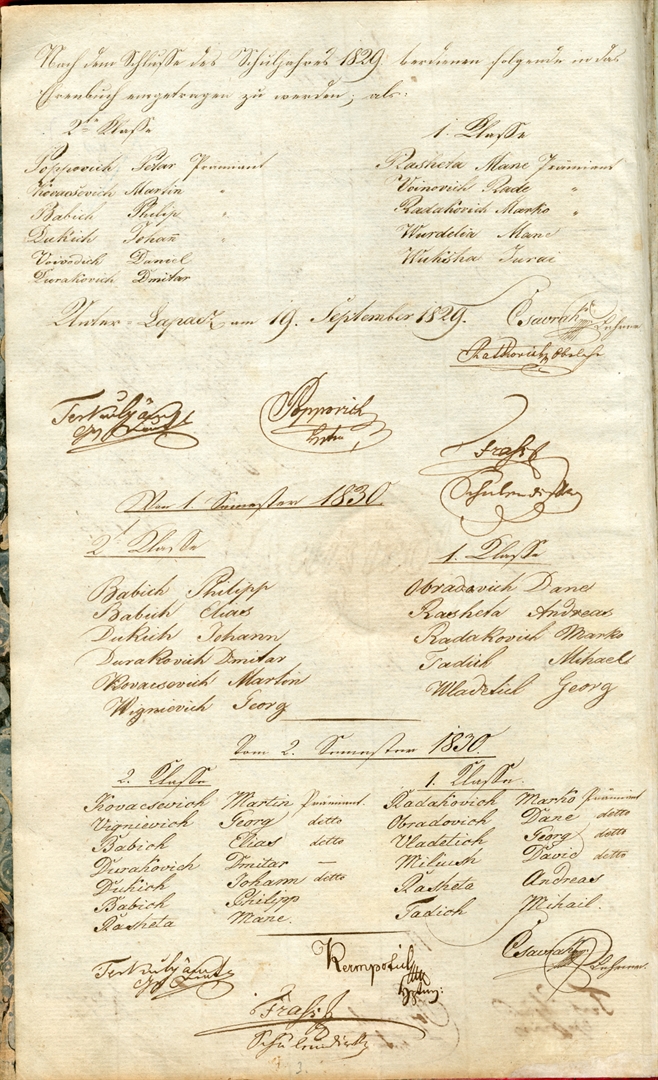 Nach dem Schlusse des Schuljahres 1829 verdienen folgende in das
Ehrenbuch eingetragen zu werden; als:
2te Klasse
1. Classe
Poppovich Petar Prämiant
Kovacsovich Martin "
Babich Philip "
Dukich Johañ "
Voivodich Daniel
Durakovich Dmitar
Rasheta Mane Prämiant
Voinovich Rade "
Radakovich Marko "
Wurdelia Mane
Wukisha Jurai
Unter-Lapacz am 19. September 1829.
Poppovich
Frass
Vom 1. Semester 1830.
2t Klasse
1. Classe
Babich Philipp
Babich Elias
Dukich Johann
Durakovich Dmitar
Kovacsovich Martin
Wignievich Georg
Obradovich Dane
Rasheta Andreas
Radakovich Marko
Tadich Michael
Wladetich Georg
Vom 2. Semester 1830.
2. Classe
1. Classe.
Kovacsevich Martin Prämiant
Vignievich Georg detto
Babich Elias detto
Durakovich Dmitar —
Dukich Johann detto
Babich Philipp
Rasheta Mane.
Radakovich Marko Prämiant
Obradovich Dane detto
Vladetich Georg detto
Miliush David detto
Rasheta Andreas
Tadich Mihail.
Frass